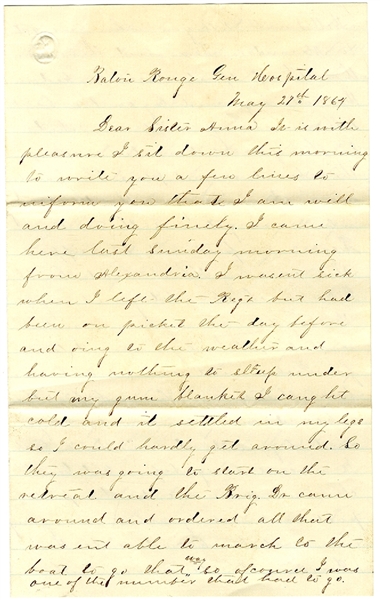 Baton Rouge Gen Hospital
May 27th 1864
Dear Sister Anna It is with
pleasure I sit down this morning
to write you a few lines to
inform you that I am well
and doing finely. I came
here last Sunday morning
from Alexandria. I wasent sick
when I left the Regt but had
been on picket the day before
and oing to the weather and
having nothing to sleep under
but my gum blanket I caught
cold and it settled in my legs
so I could hardly get around. So
they was going to start on the
retreat and the Brig. Dr came
around and ordered all that
was ent able to march to the
boat to go that way so ofcource I was
one of the number that had to go.